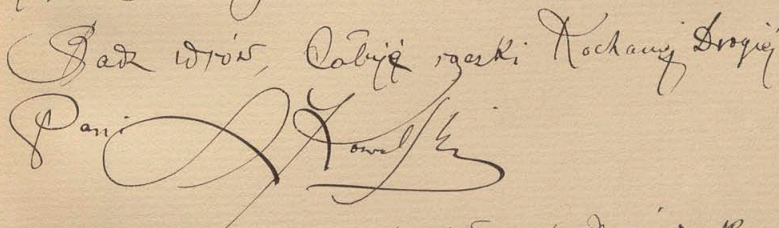 Bądź zdrów, Całuję rączki Kochanej Drogiej
Pani A Kowalski